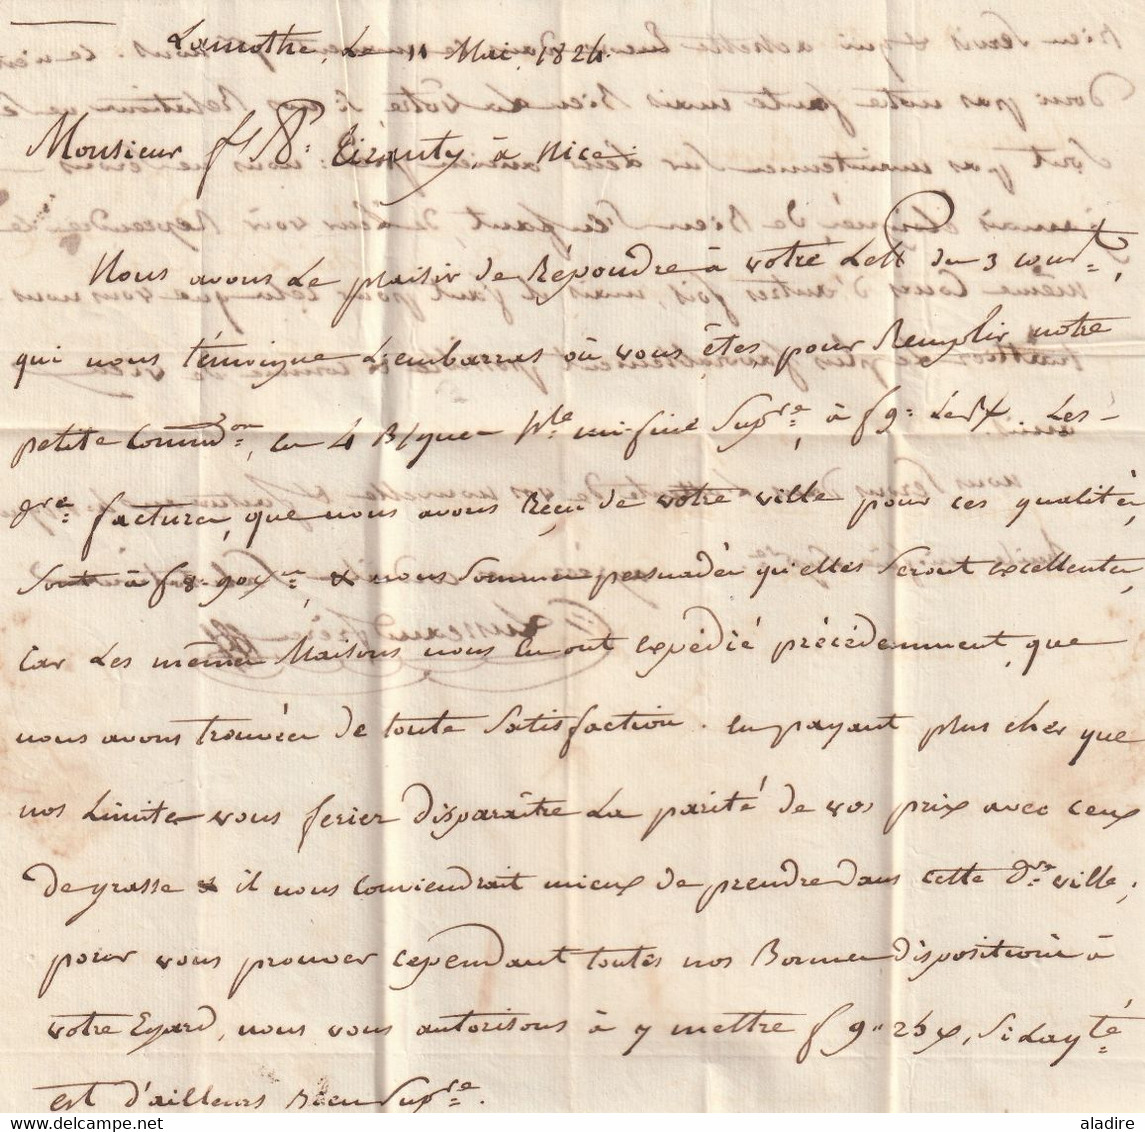 Lamothe, Le 11 Mai, 1824.
Monsieur à Nice.
Nous avons Le plaisir de Répondre à votre Lettre du 3 Court,
qui nous témoigne L'embarras où vous êtes pour Remplir notre
petite Commdon, en 4 B/ques hle mi-fine Supre, à f 9: Le Les
dre factures, que nous avons Reçu de votre ville pour ces qualités,
Sont à f 8-90, & nous Sommes persuadés qu'elles Seront excellentes,
Car Les mêmes Maisons nous En ont expédié précédemment, que
nous avons trouvées de toute Satisfaction. En payant plus cher que
nos Limites vous feriez disparaître La parité de vos prix avec ceux
de grasse & il nous Conviendrait mieux de prendre dans cette dre ville;
pour vous prouver cependant toutes nos Bonnes dispositions à
votre Egard, nous vous autorisons à y mettre f 9"25, Si La qté
est d'ailleurs Bien Supre.
aladire